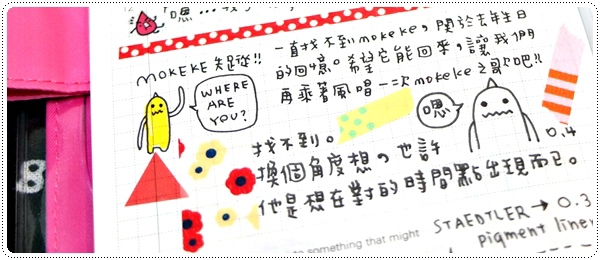 「嗯...
MOKEKE 失蹤!!
一直找不到mokeke,關於去年生日
的回憶。希望它能回來,讓我們
再乘著風唱一次mokeke之歌吧!!
WHERE
ARE
YOU?
嗯
找不到。
換個角度想,也許
他是想在對的時間點出現而已。
0.4
STAEDTLER → 0.3
pigment liner
to something that might